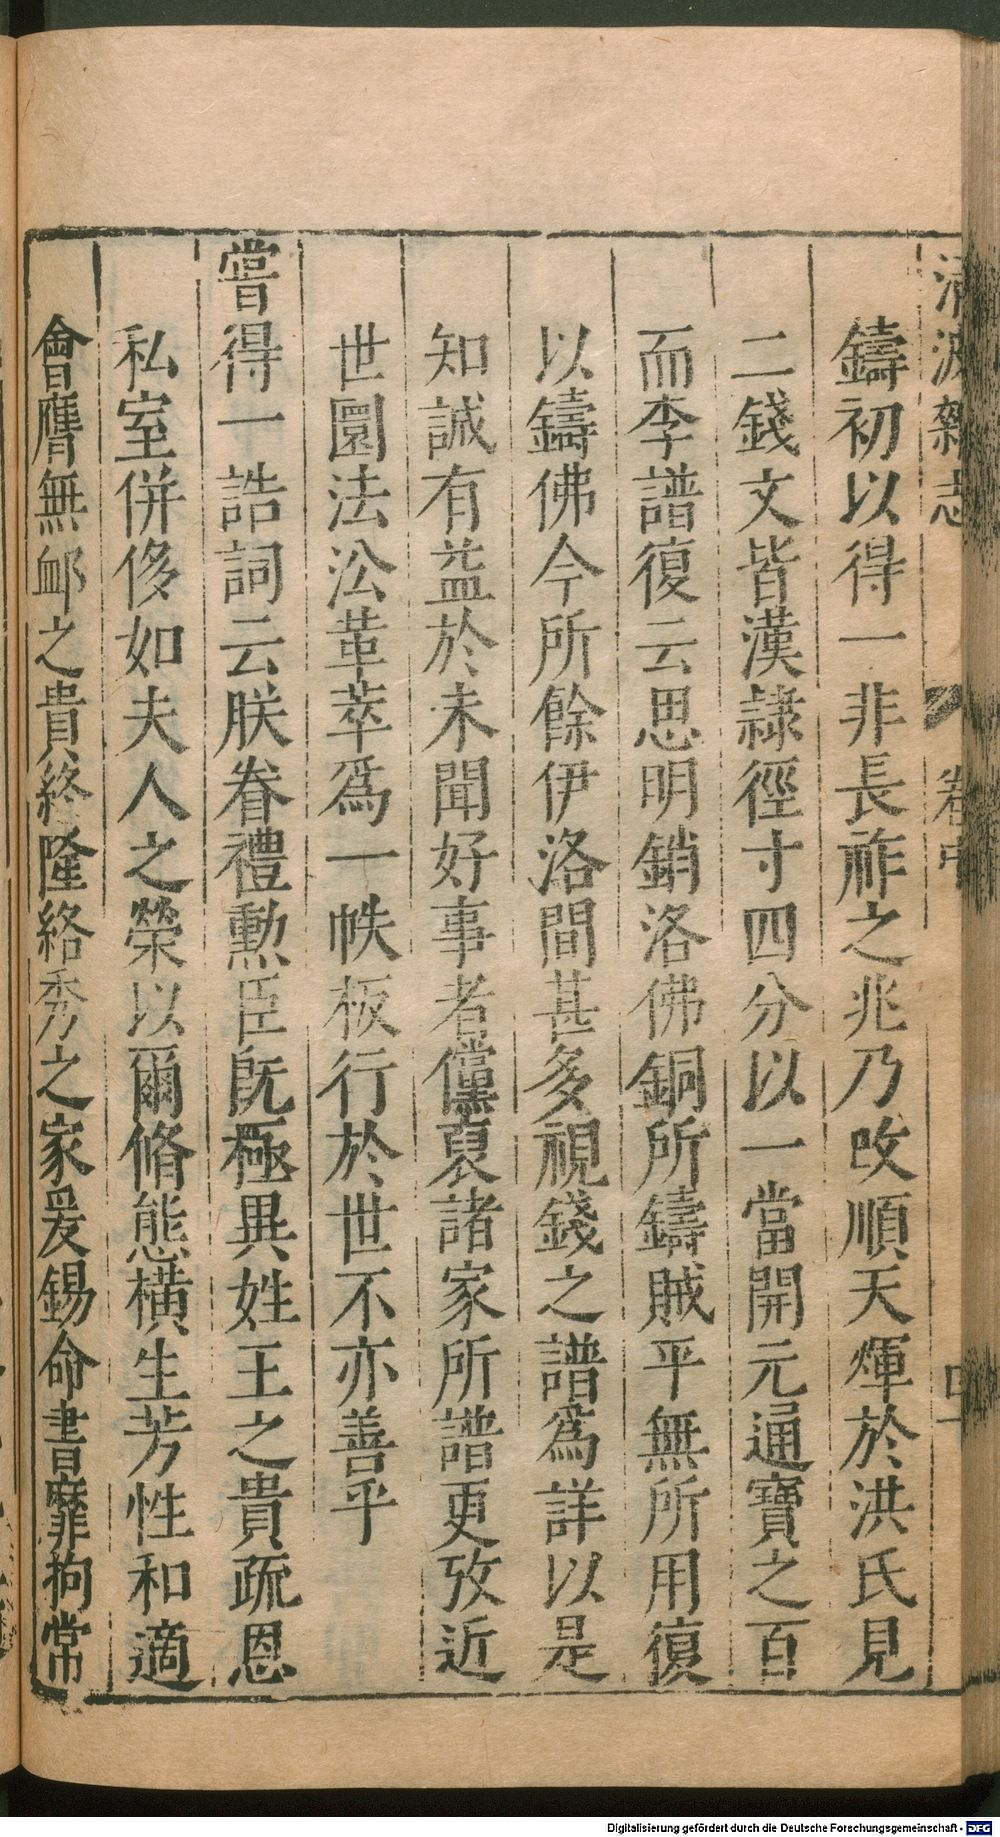 清波雜志 卷中
鑄初以得一非長祚之兆乃改順天煇於洪氏見
二錢文皆漢隷徑寸四分以一當開元通寶之百
而李譜復云思明銷洛佛銅所鑄賊平無所用復
以鑄佛今所餘伊洛間甚多視錢之譜爲詳以是
知誠有益於未聞好事者儻裒諸家所譜更攷近
世圜法㳂革萃爲一帙板行於世不亦善乎
嘗得一誥詞云朕眷禮勲臣旣極異姓王之貴疏恩
私室併侈如夫人之榮以爾脩態横生芳性和適
會膺無䘏之貴終隆絡秀之家爰錫命書靡拘常
Digitalisierung gefördert durch die Deutsche Forschungsgemeinschaft - DFG